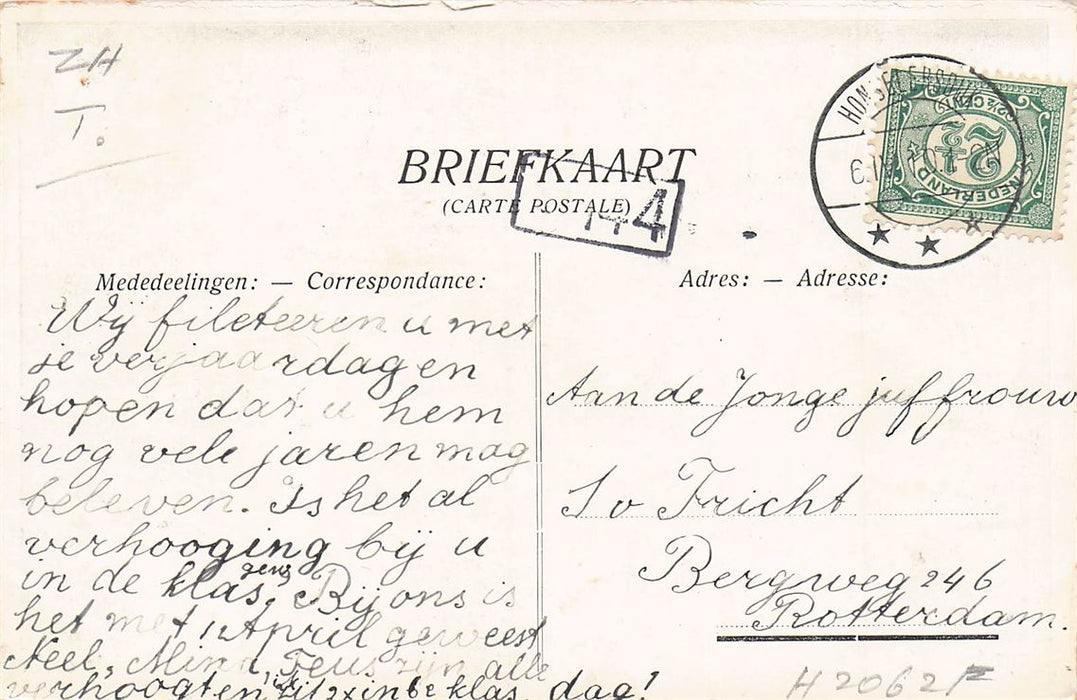 ZH
T.
BRIEFKAART
(CARTE POSTALE)
4
HONSELERSDIJK
NEDERLAND
2½
Mededeelingen: — Correspondance:
Wij fileteeren u met
je verjaardag en
hopen dat u hem
nog vele jaren mag
beleven. Is het al
verhooging bij u
in de klas. Bij ons is
het met 1 April geweest
Neel, Mina, Teus zijn alle
verhoogt en zit in 6e klas, dag!
Adres: — Adresse:
Aan de Jonge juffrouw
S v Fricht
Bergweg 246
Rotterdam.
H2062F